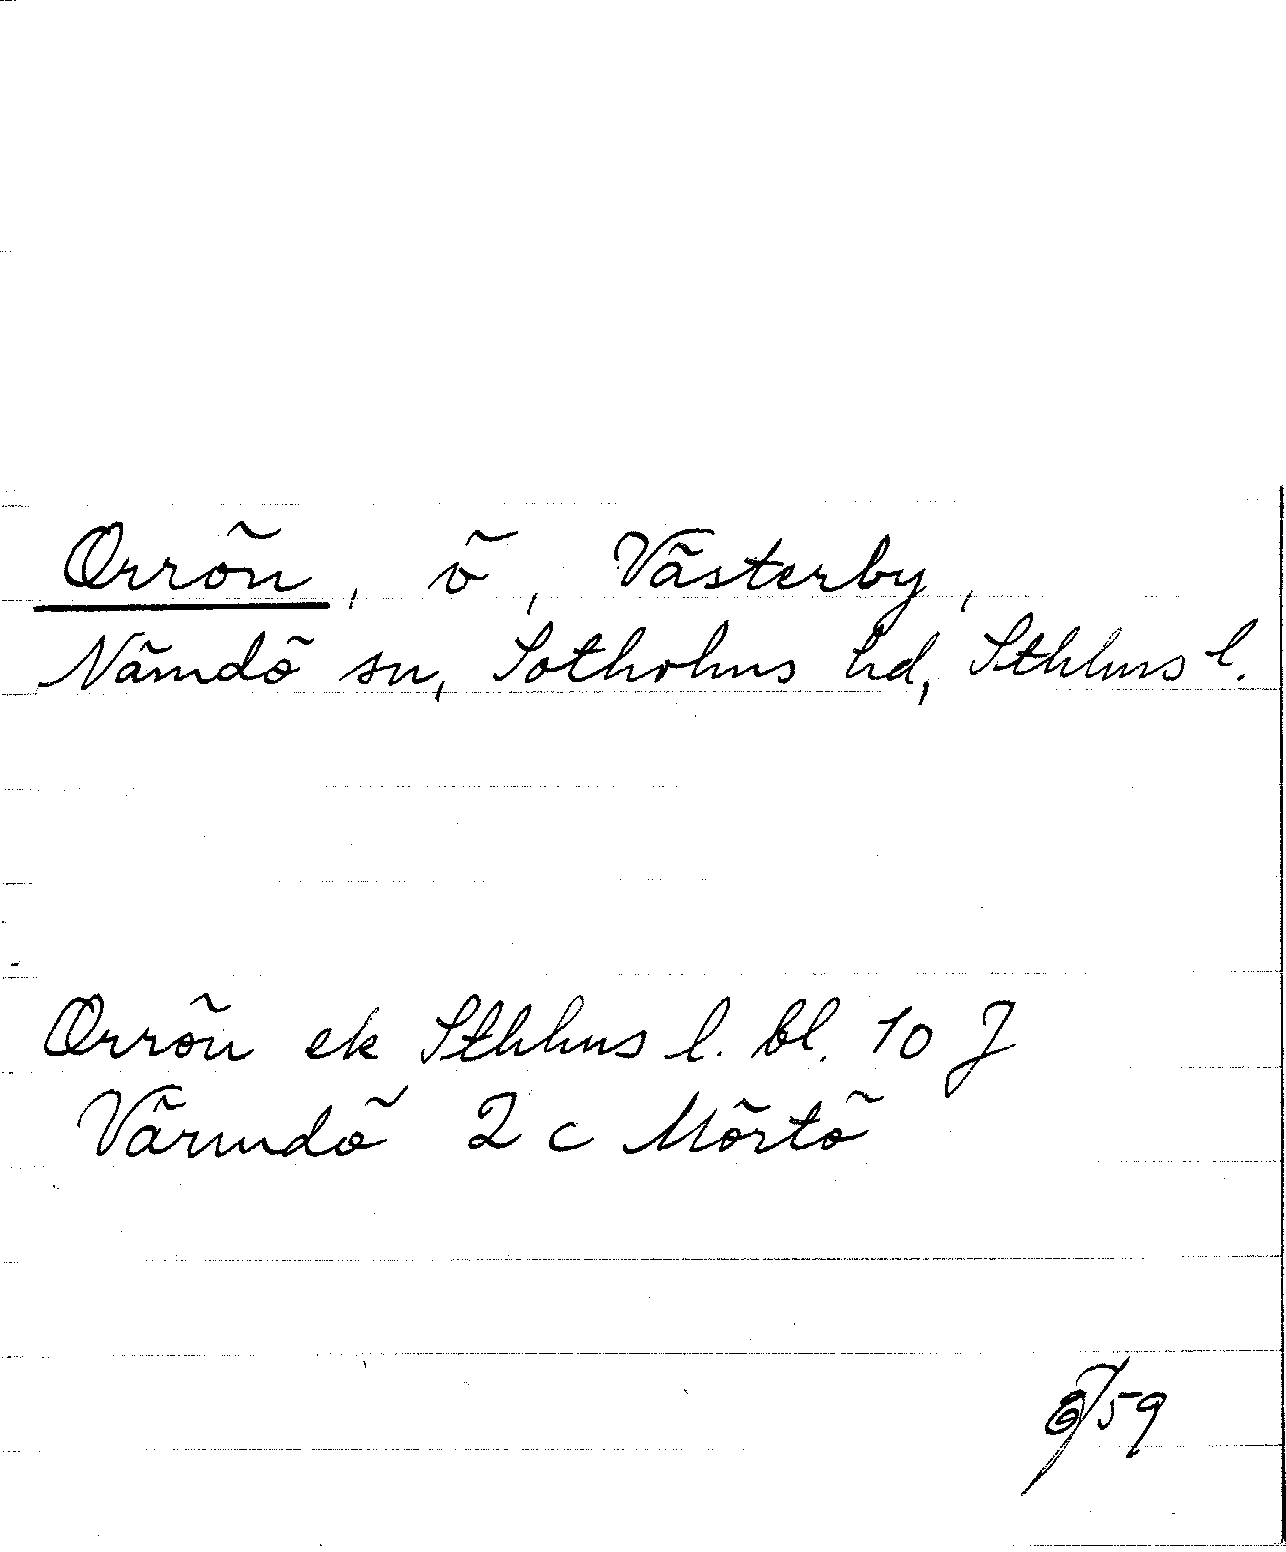 Orrön, ö, Västerby,
Nämdö sn, Sotholms hd, Sthlms l.
Orrön ek Sthlms l. bl. 10 J
Värmdö 2 c Mörtö
59